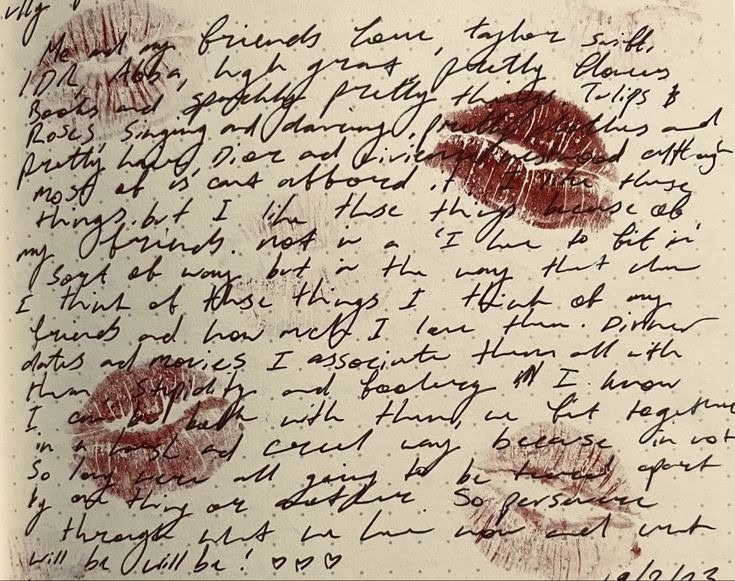 Me and my friends love, taylor swift,
1DR, Abba, high grant, pretty flowers
Books and sparkly pretty things Tulips &
Roses, Singing and dancing, pretty clothes and
pretty hair, Dior and vivienne westwood although
most of is cant afford it. I like these
things. but I like these things because of
my friends. not in a 'I have to fit in'
sort of way but in the way that when
I think of these things I think of my
friends and how much I love them. Dinner
dates and movies I associate them all with
them stupidity and foolery I know
I can be both with them, we fit together
in a harsh and cruel way because in not
So long were all going to be teared apart
by one thing or another. So persevere
through what we have now and what
will be will be! ♡♡♡